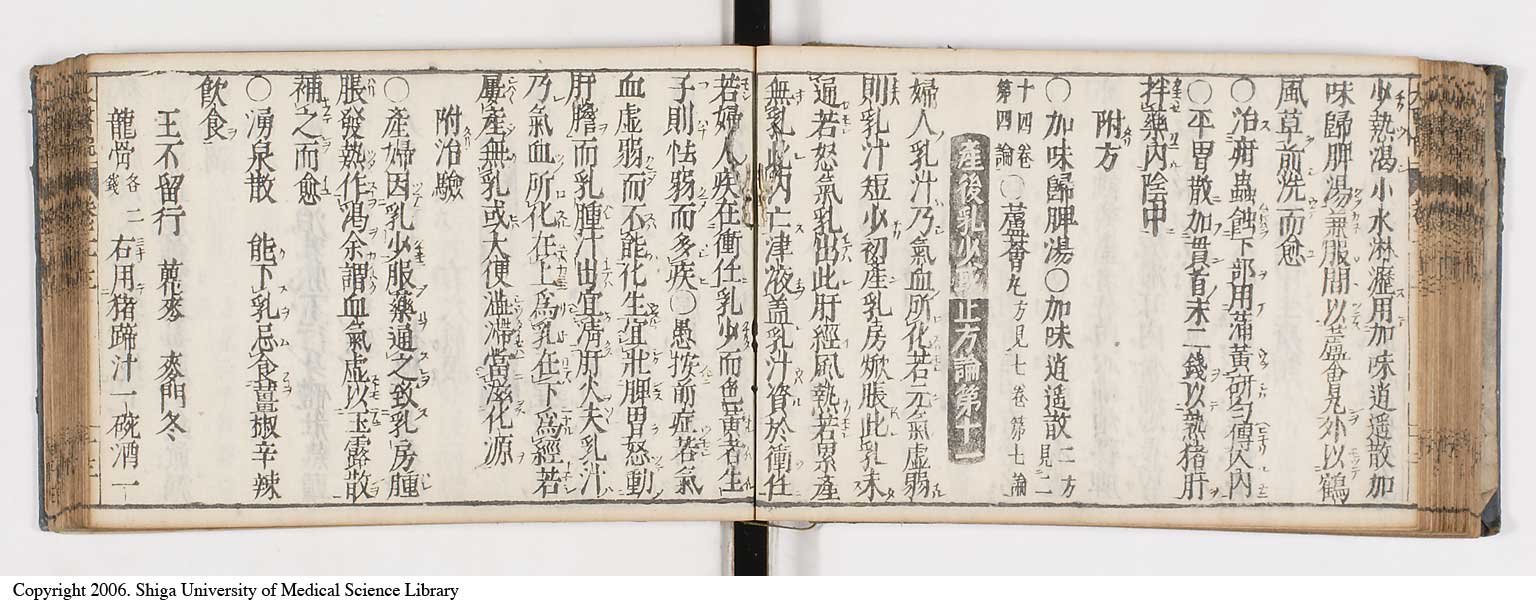 少熱渴小水淋瀝用加味逍遥散加
味歸脾湯兼服間以蘆薈見外以鶴
風草煎洗而愈
○治疳蟲蝕下部用蒲黄研匀傅入内
○平胃散加貫首末二錢以熱猪肝
拌藥内陰中
附方
○加味歸脾湯○加味逍遥散二方見二
十四卷第四論○蘆薈丸方見七卷第七論
産後乳少或止方論第十一
婦人乳汁乃氣血所化若元氣虚弱
則乳汁短少初産乳房焮脹此乳未
通若怒氣乳出此肝經風熱若累産
無乳此内亡津液蓋乳汁資於衝任
若婦人疾在衝任乳少而色黄者生
子則怯弱而多疾○愚按前症若氣
血虚弱而不能化生宜壯脾胃怒動
肝膽而乳腫汁出宜清肝火夫乳汁
乃氣血所化在上為乳在下為經若
屢産無乳或大便澁滯當滋化源
附治驗
○産婦因乳少服藥通之致乳房腫
脹發熱作渴余謂血氣虚以玉露散
補之而愈
○湧泉散 能下乳忌食薑椒辛辣
飲食
王不留行 瞿麥 麥門冬
龍骨各二錢 右用猪蹄汁一碗酒一
Copyright 2006. Shiga University of Medical Science Library